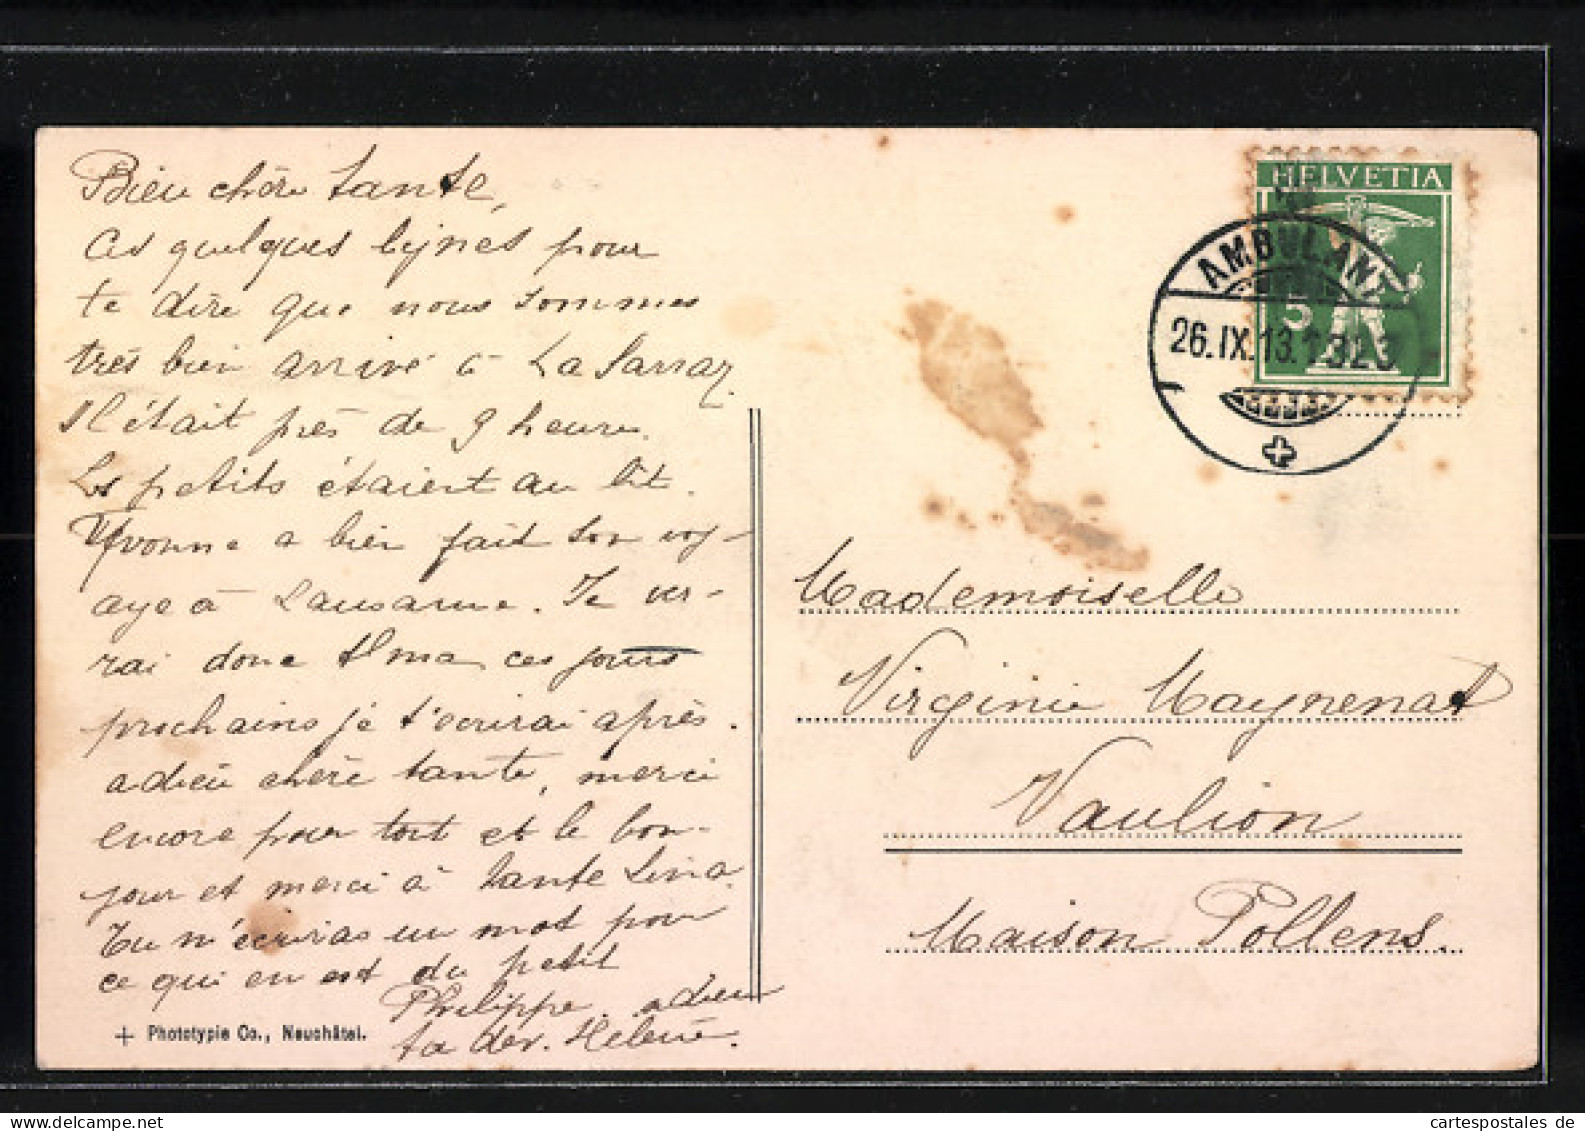 Bien chère tante,
Ces quelques lignes pour
te dire que nous sommes
très bien arrivé à La Sarraz.
Il était près de 9 heures.
Les petits étaient au lit.
Yvonne a bien fait son voy-
age à Lausanne. Je ver-
rai donc Alma ces jours
prochains je t'écrirai après.
adieu chère tante, merci
encore pour tout et le bon-
jour et merci à tante Lina.
Tu m'écriras un mot pour
ce qui en est du petit
Philippe. adieu
ta dev. Hélène.
+ Phototypie Co., Neuchâtel.
HELVETIA
5
AMBULANT
26.IX.13.
Mademoiselle
Virginie Maygnenat
Vaulion
Maison Pollens.
cartespostales de